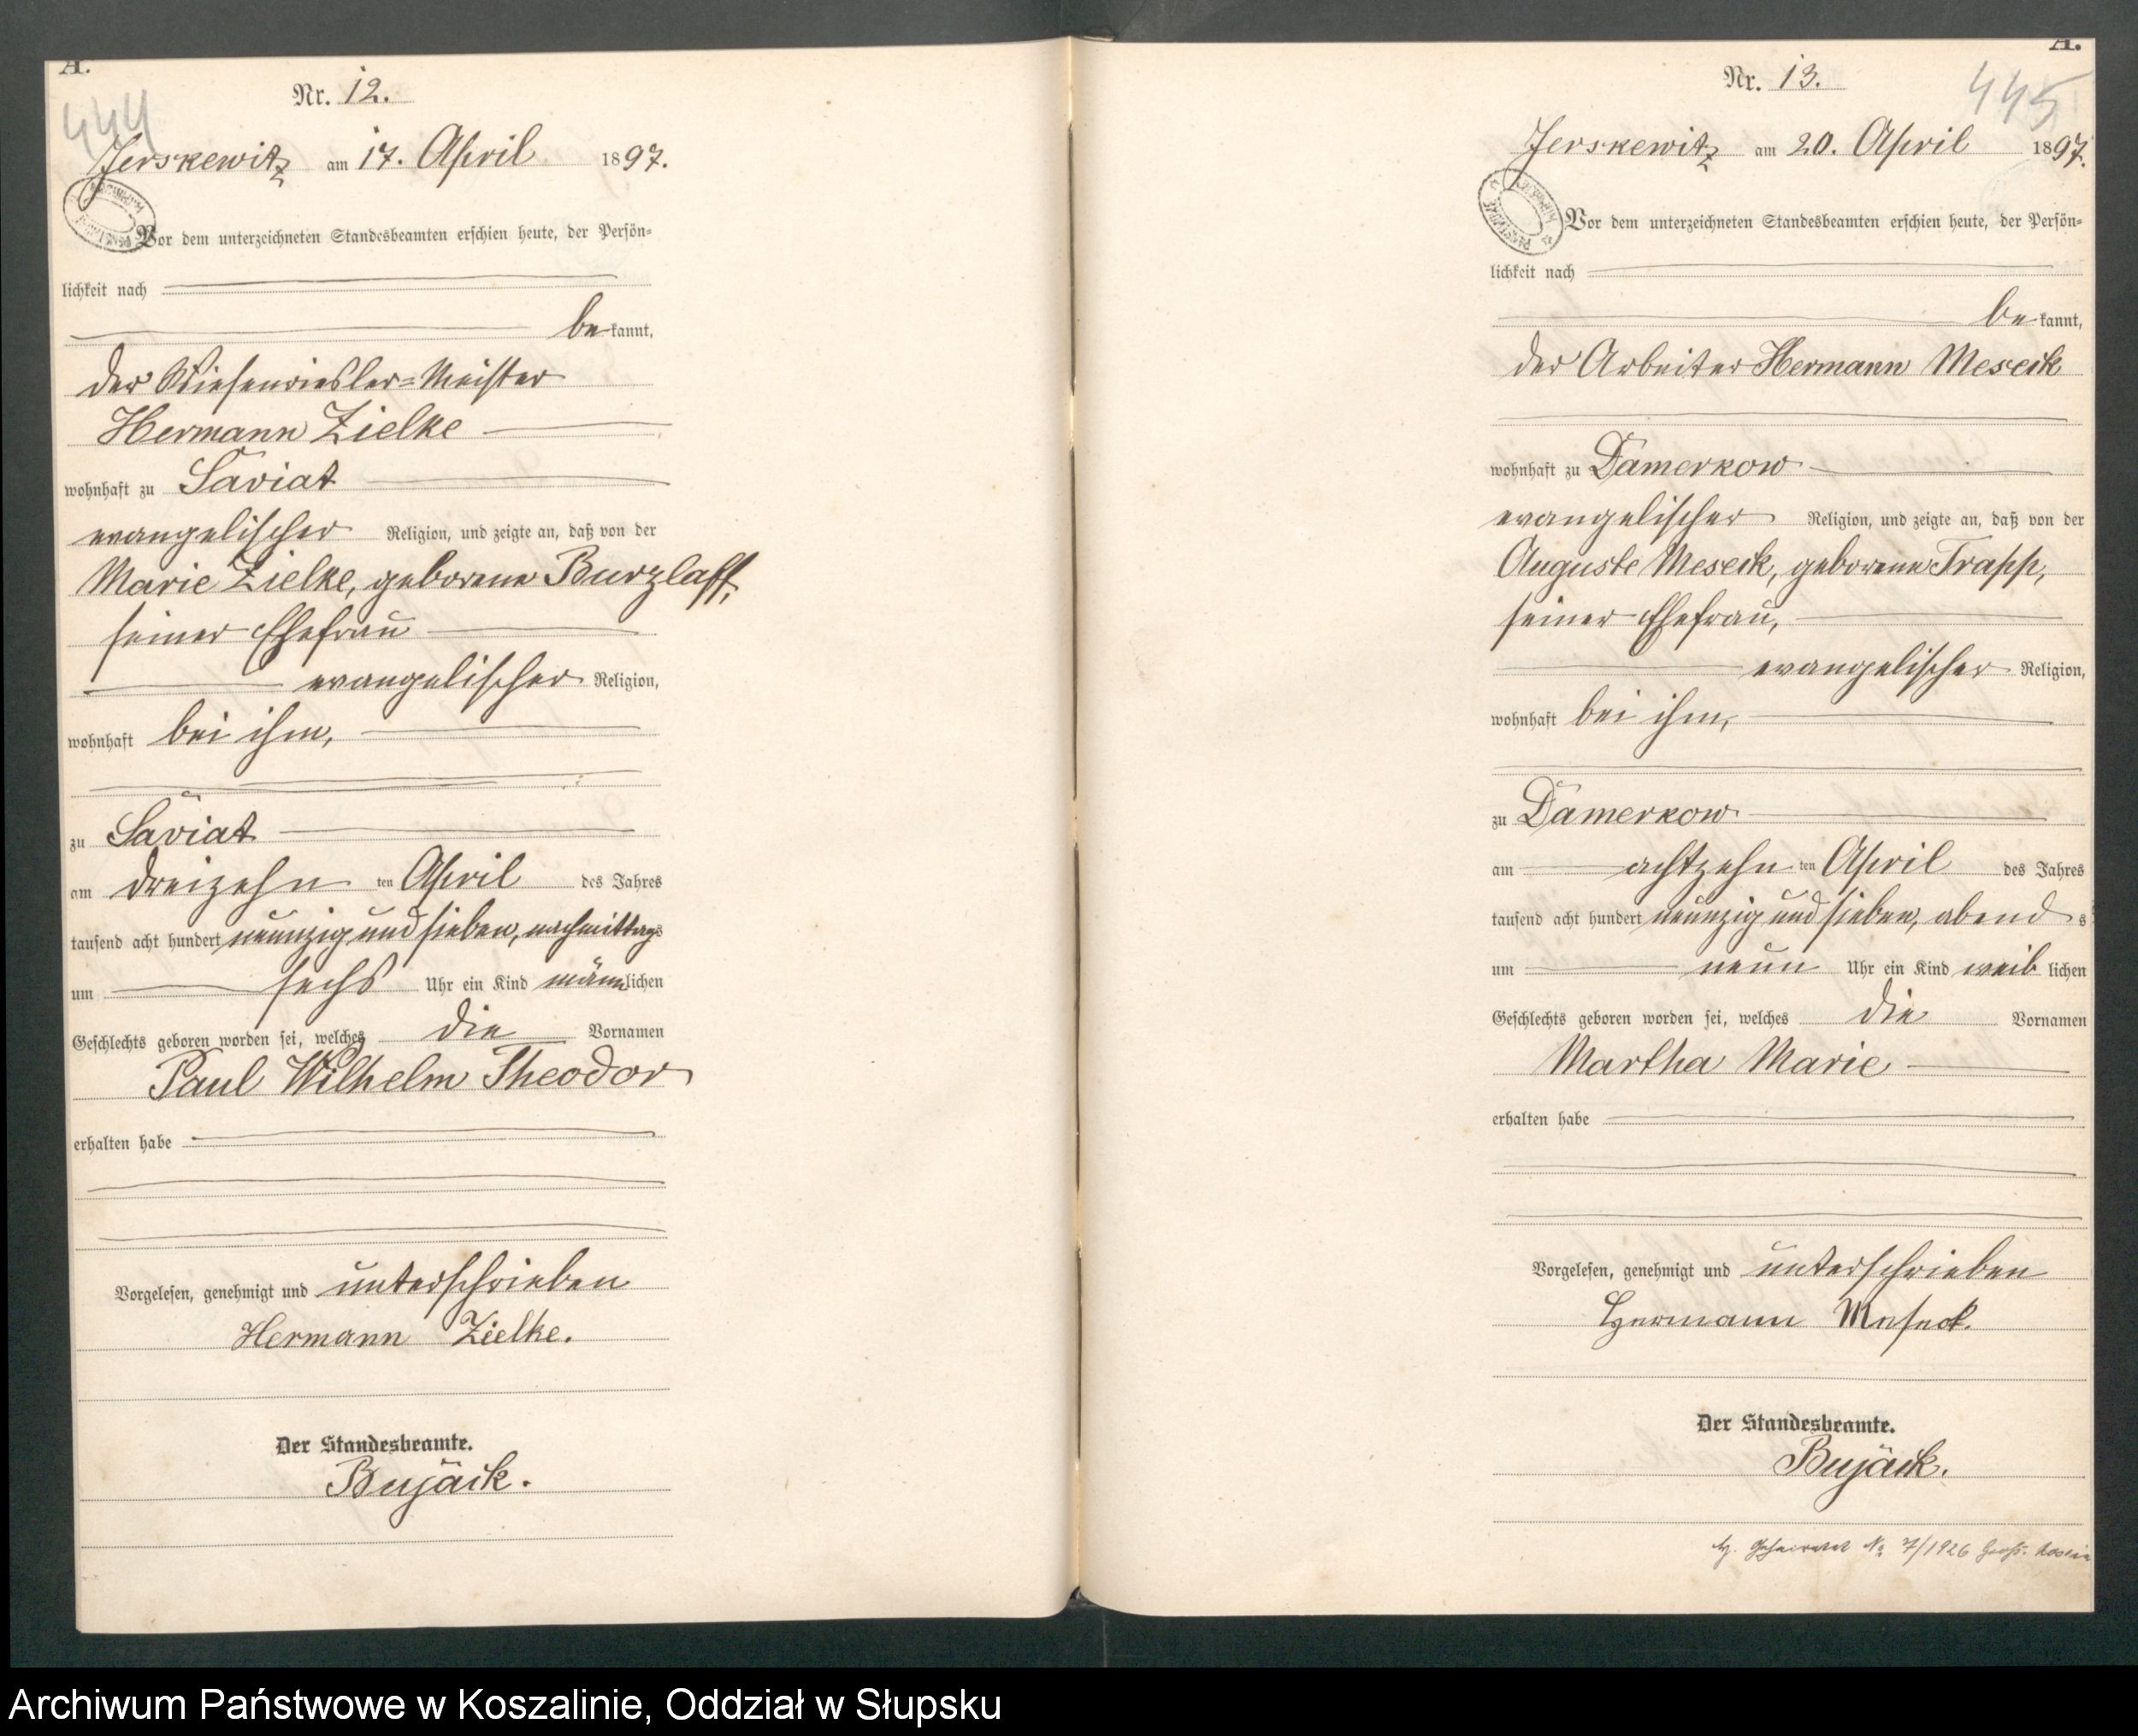 A.
444
Nr. 12.
Jerskewitz am 17. April 1897.
Vor dem unterzeichneten Standesbeamten erschien heute, der Persön=
lichkeit nach
bekannt,
der Wiesenriesler=Meister
Hermann Zielke
wohnhaft zu Saviat
evangelischer Religion, und zeigte an, daß von der
Marie Zielke, geborene Burzlaff,
seiner Ehefrau
evangelischer Religion,
wohnhaft bei ihm,
zu Saviat
am dreizehn ten April des Jahres
tausend acht hundert neunzig und sieben, nachmittags
um sechs Uhr ein Kind männlichen
Geschlechts geboren worden sei, welches die Vornamen
Paul Wilhelm Theodor
erhalten habe
Vorgelesen, genehmigt und unterschrieben
Hermann Zielke.
Der Standesbeamte.
Bujäck.
A.
445
Nr. 13.
Jerskewitz am 20. April 1897.
Vor dem unterzeichneten Standesbeamten erschien heute, der Persön=
lichkeit nach
bekannt,
der Arbeiter Hermann Meseck
wohnhaft zu Damerkow
evangelischer Religion, und zeigte an, daß von der
Auguste Meseck, geborene Trapp,
seiner Ehefrau,
evangelischer Religion,
wohnhaft bei ihm,
zu Damerkow
am achtzehn ten April des Jahres
tausend acht hundert neunzig und sieben, abends
um neun Uhr ein Kind weiblichen
Geschlechts geboren worden sei, welches die Vornamen
Martha Marie
erhalten habe
Vorgelesen, genehmigt und unterschrieben
Hermann Meseck.
Der Standesbeamte.
Bujäck.
Geheiratet No 7/1926
Archiwum Państwowe w Koszalinie, Oddział w Słupsku